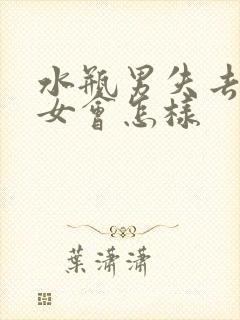 水瓶男失去
女會怎樣
葉瀟瀟